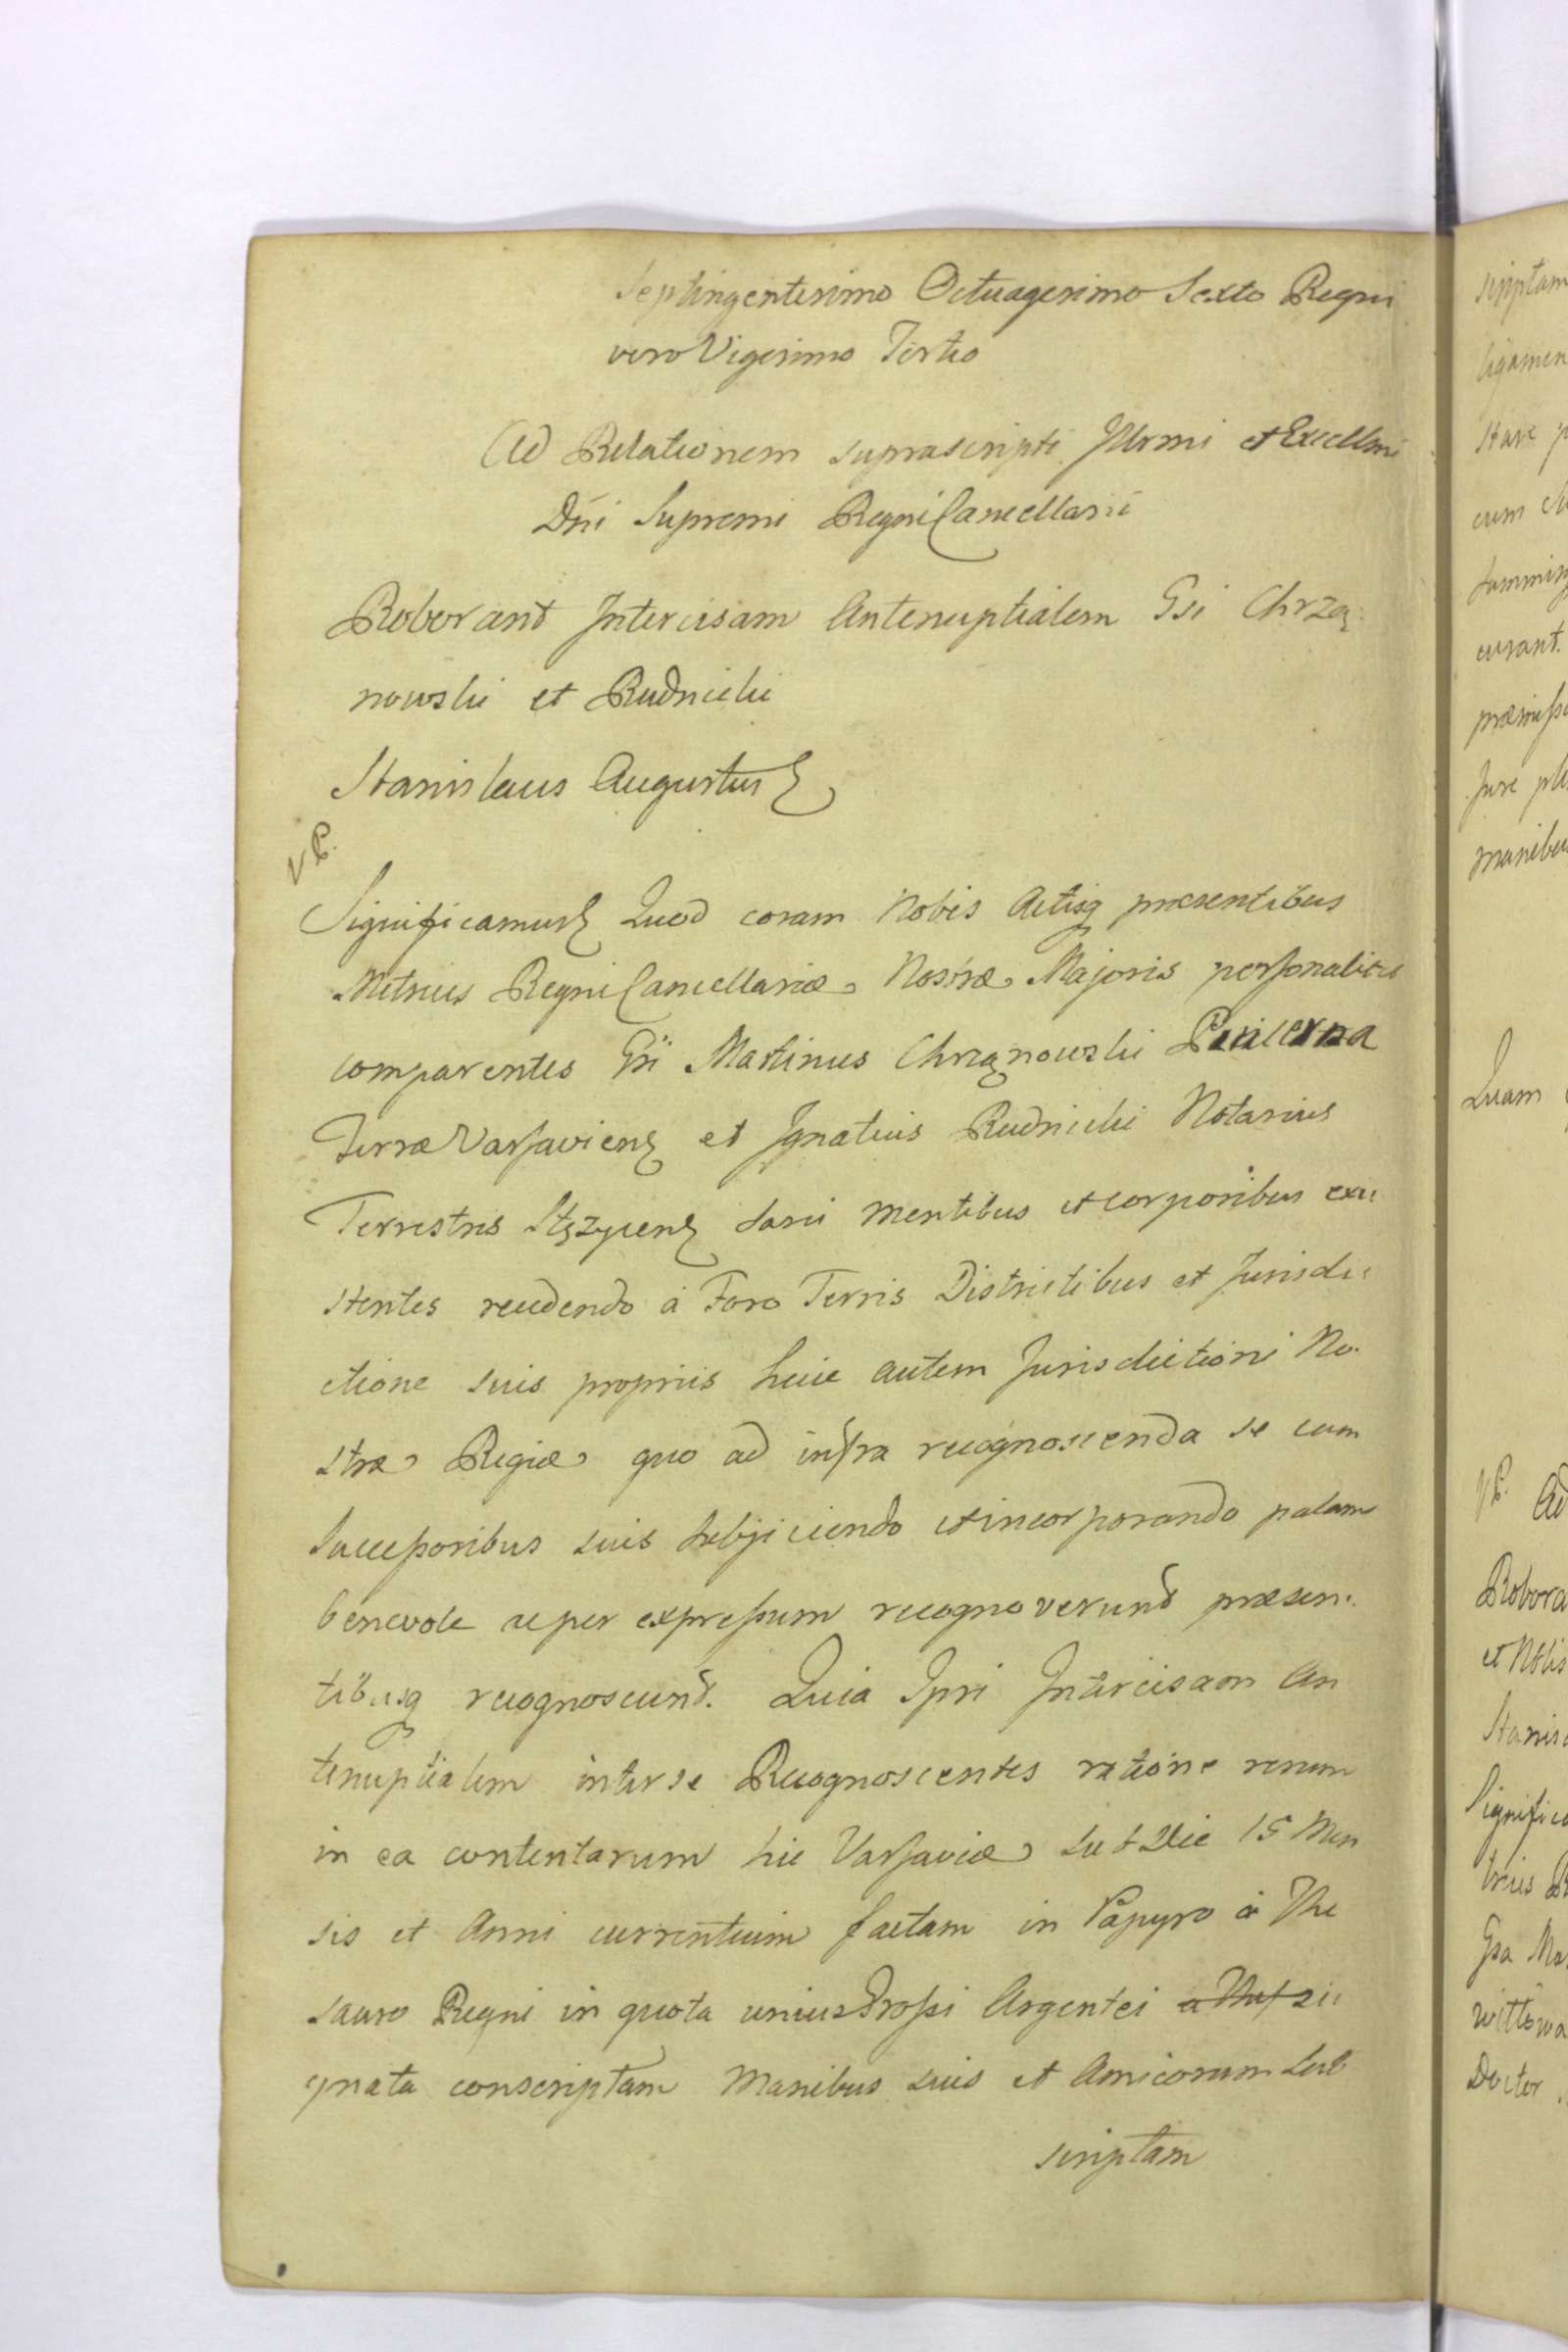 Septingentesimo Octuagesimo Sexto Regni
vero Vigesimo Tertio
Ad Relationem suprascripti Illrmi et Excellmi
Dñi Supremi Regni Cancellarii
Roborant Intercisam Antenuptialem Gsi Chrzą:
nowski et Rudnicki
Stanislaus Augustus
VC.
Significamus Quod coram Nobis Actisq presentibus
Metrices Regni Cancellariæ Nostræ Majoris personalites
comparentes Gsi Martinus Chrząnowski
Terræ Varsaviens et Ignatius Rudnicki Notarius
Terrestris Stęzycens sani mentibus et corporibus exi:
stentes recedendo à Foro Terris Districtibus et Jurisdi:
ctione suis propriis huic autem Jurisdictioni No:
stræ Regiæ quo ad infra recognoscenda se cum
Successoribus suis subjiciendo et incorporando palam
benevole ac per expressum recognoverunt præsen:
tibusq recognoscunt. Quia Ipsi Intercisam An
tenuptialem inter se Recognoscentes ratione rerum
in ea contentarum hic Varsaviæ sub Die 15 Men
sis et Anni currentium factam in Papyro à The
sauro Regni in quota unius Grossi Argentei si:
gnata conscriptam Manibus suis et Amicorum Sub
scriptam
scriptam
ligamen
stare p
cum
summis
curant.
præmisso
Jure ple
manibus
Quam
VC. Ad
Robora
et Nblis
Stanis
Significa
trices R
Gsa Ma
wittowa
Doctor